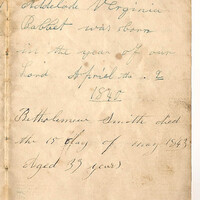 Virginia
was born
in the year of our
Lord April the 2
1845
Bartholomew Smith died
the 15 day of may 1843
Aged 39 years